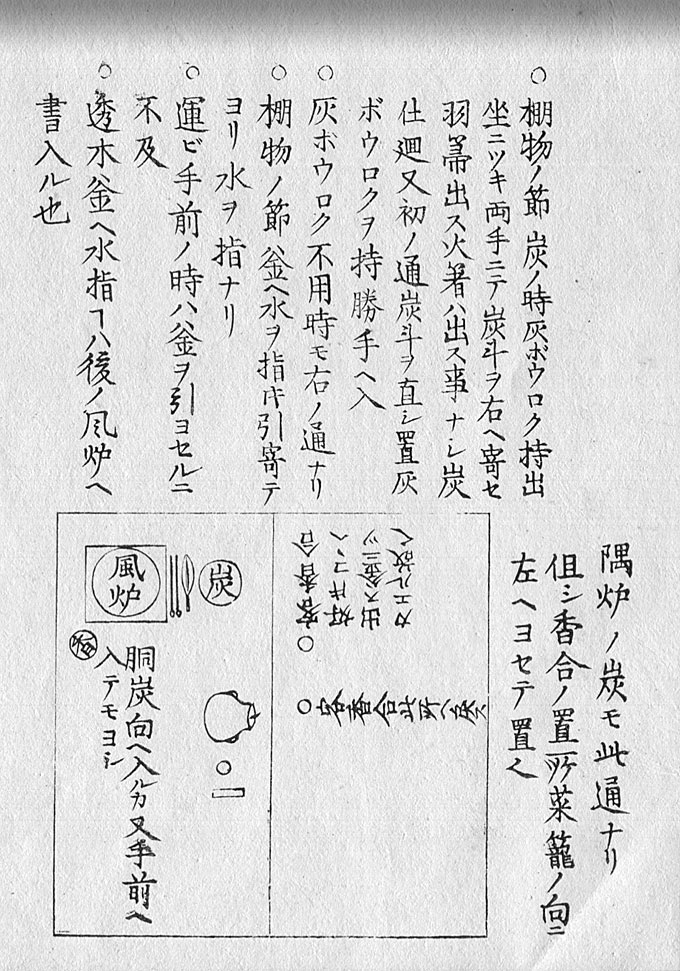 ○棚物ノ節炭ノ時灰ボウロク持出
坐ニツキ両手ニテ炭斗ヲ右ヘ寄セ
羽箒出ス火箸ハ出ス事ナシ炭
仕廻又初ノ通炭斗ヲ直シ置灰
ボウロクヲ持勝手ヘ入
○灰ボウロク不用時モ右ノ通ナリ
○棚物ノ節釜ヘ水ヲ指キ引寄テ
ヨリ水ヲ指ナリ
○運ビ手前ノ時ハ釜ヲ引ヨセルニ
不及
○透木釜ヘ水指ヿハ後ノ風炉ヘ
書入ル也
隅炉ノ炭モ此通ナリ
但シ香合ノ置所ケ菜籠ノ向ニ
左ヘヨセテ置く
○客香合
出ス釜ニツ
○
香合此所ヘ戻ス
炭
風炉
胴炭向ヘ入ルカ又手前ヘ
入テモヨシ